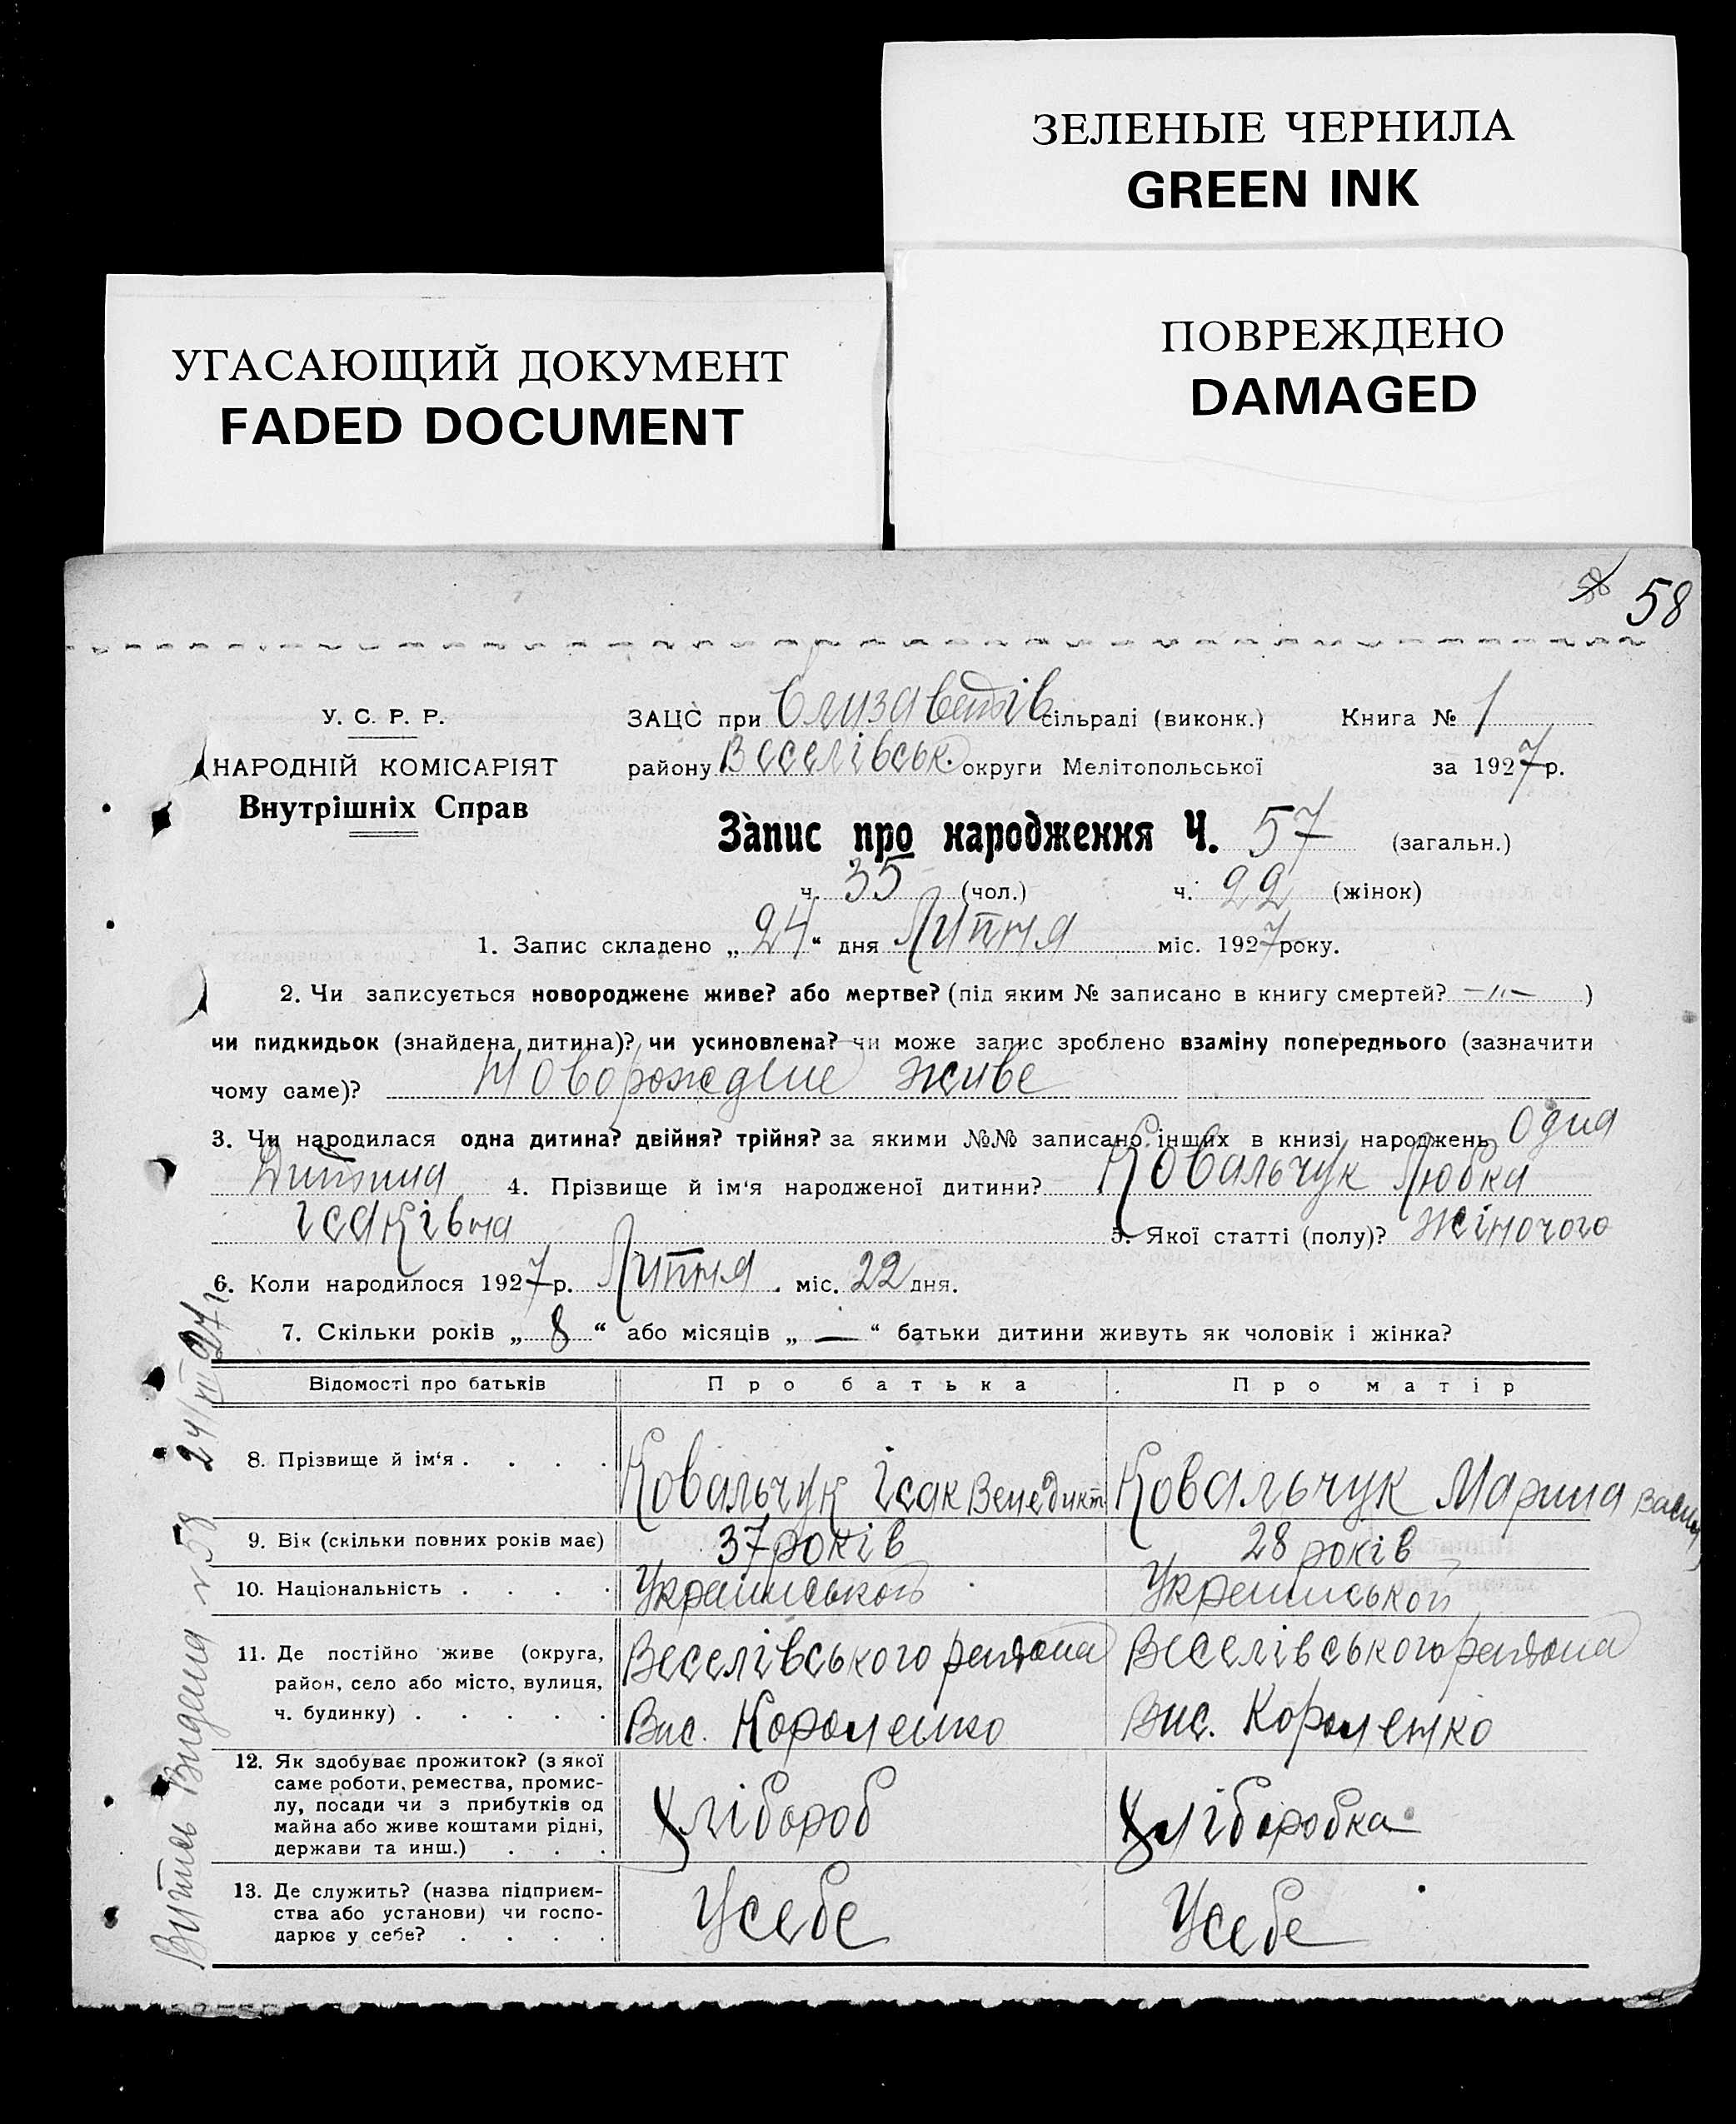 ЗЕЛЕНЫЕ ЧЕРНИЛА
GREEN INK
УГАСАЮЩИЙ ДОКУМЕНТ
FADED DOCUMENT
ПОВРЕЖДЕНО
DAMAGED
58
У. С. Р. Р.
НАРОДНІЙ КОМІСАРІЯТ
Внутрішніх Справ
ЗАЦС при Єлизаветів сільраді (виконк.) Книга № 1
району Веселівськ. округи Мелітопольської за 1927 р.
Запис про народження Ч. 57 (загальн.)
ч. 35 (чол.) ч. 22 (жінок)
1. Запис складено „ 24 “ дня Липня міс. 1927 року.
2. Чи записується новороджене живе? або мертве? (під яким № записано в книгу смертей? —„— )
чи пидкидьок (знайдена дитина)? чи усиновлена? чи може запис зроблено взаміну попереднього (зазначити
чому саме)? Новорождене живе
3. Чи народилася одна дитина? двійня? трійня? за якими №№ записано інших в книзі народжень Одна
Дитина 4. Прізвище й ім'я народженої дитини? Ковальчук Любка
Ісаківна 5. Якої статті (полу)? жіночого
6. Коли народилося 1927 р. Липня міс. 22 дня.
7. Скільки років „ 8 “ або місяців „ — “ батьки дитини живуть як чоловік і жінка?
Відомості про батьків Про батька Про матір
8. Прізвище й ім'я . . . . Ковальчук Ісак Венедикт Ковальчук Марина
9. Вік (скільки повних років має) 37 років 28 років
10. Національність . . . . Украинськои Украинськои
11. Де постійно живе (округа,
район, село або місто, вулиця,
ч. будинку) . . . . .
Веселівського района Веселівського района
Вис. Короленко Вис. Короленко
12. Як здобуває прожиток? (з якої
саме роботи, ремества, промис-
лу, посади чи з прибутків од
майна або живе коштами рідні,
держави та инш.) . . .
Хлібороб Хліборобка
13. Де служить? (назва підприєм-
ства або установи) чи госпо-
дарює у себе? . . . .
Усебе Усебе
Витись Видана № 58 24/VII 27 г